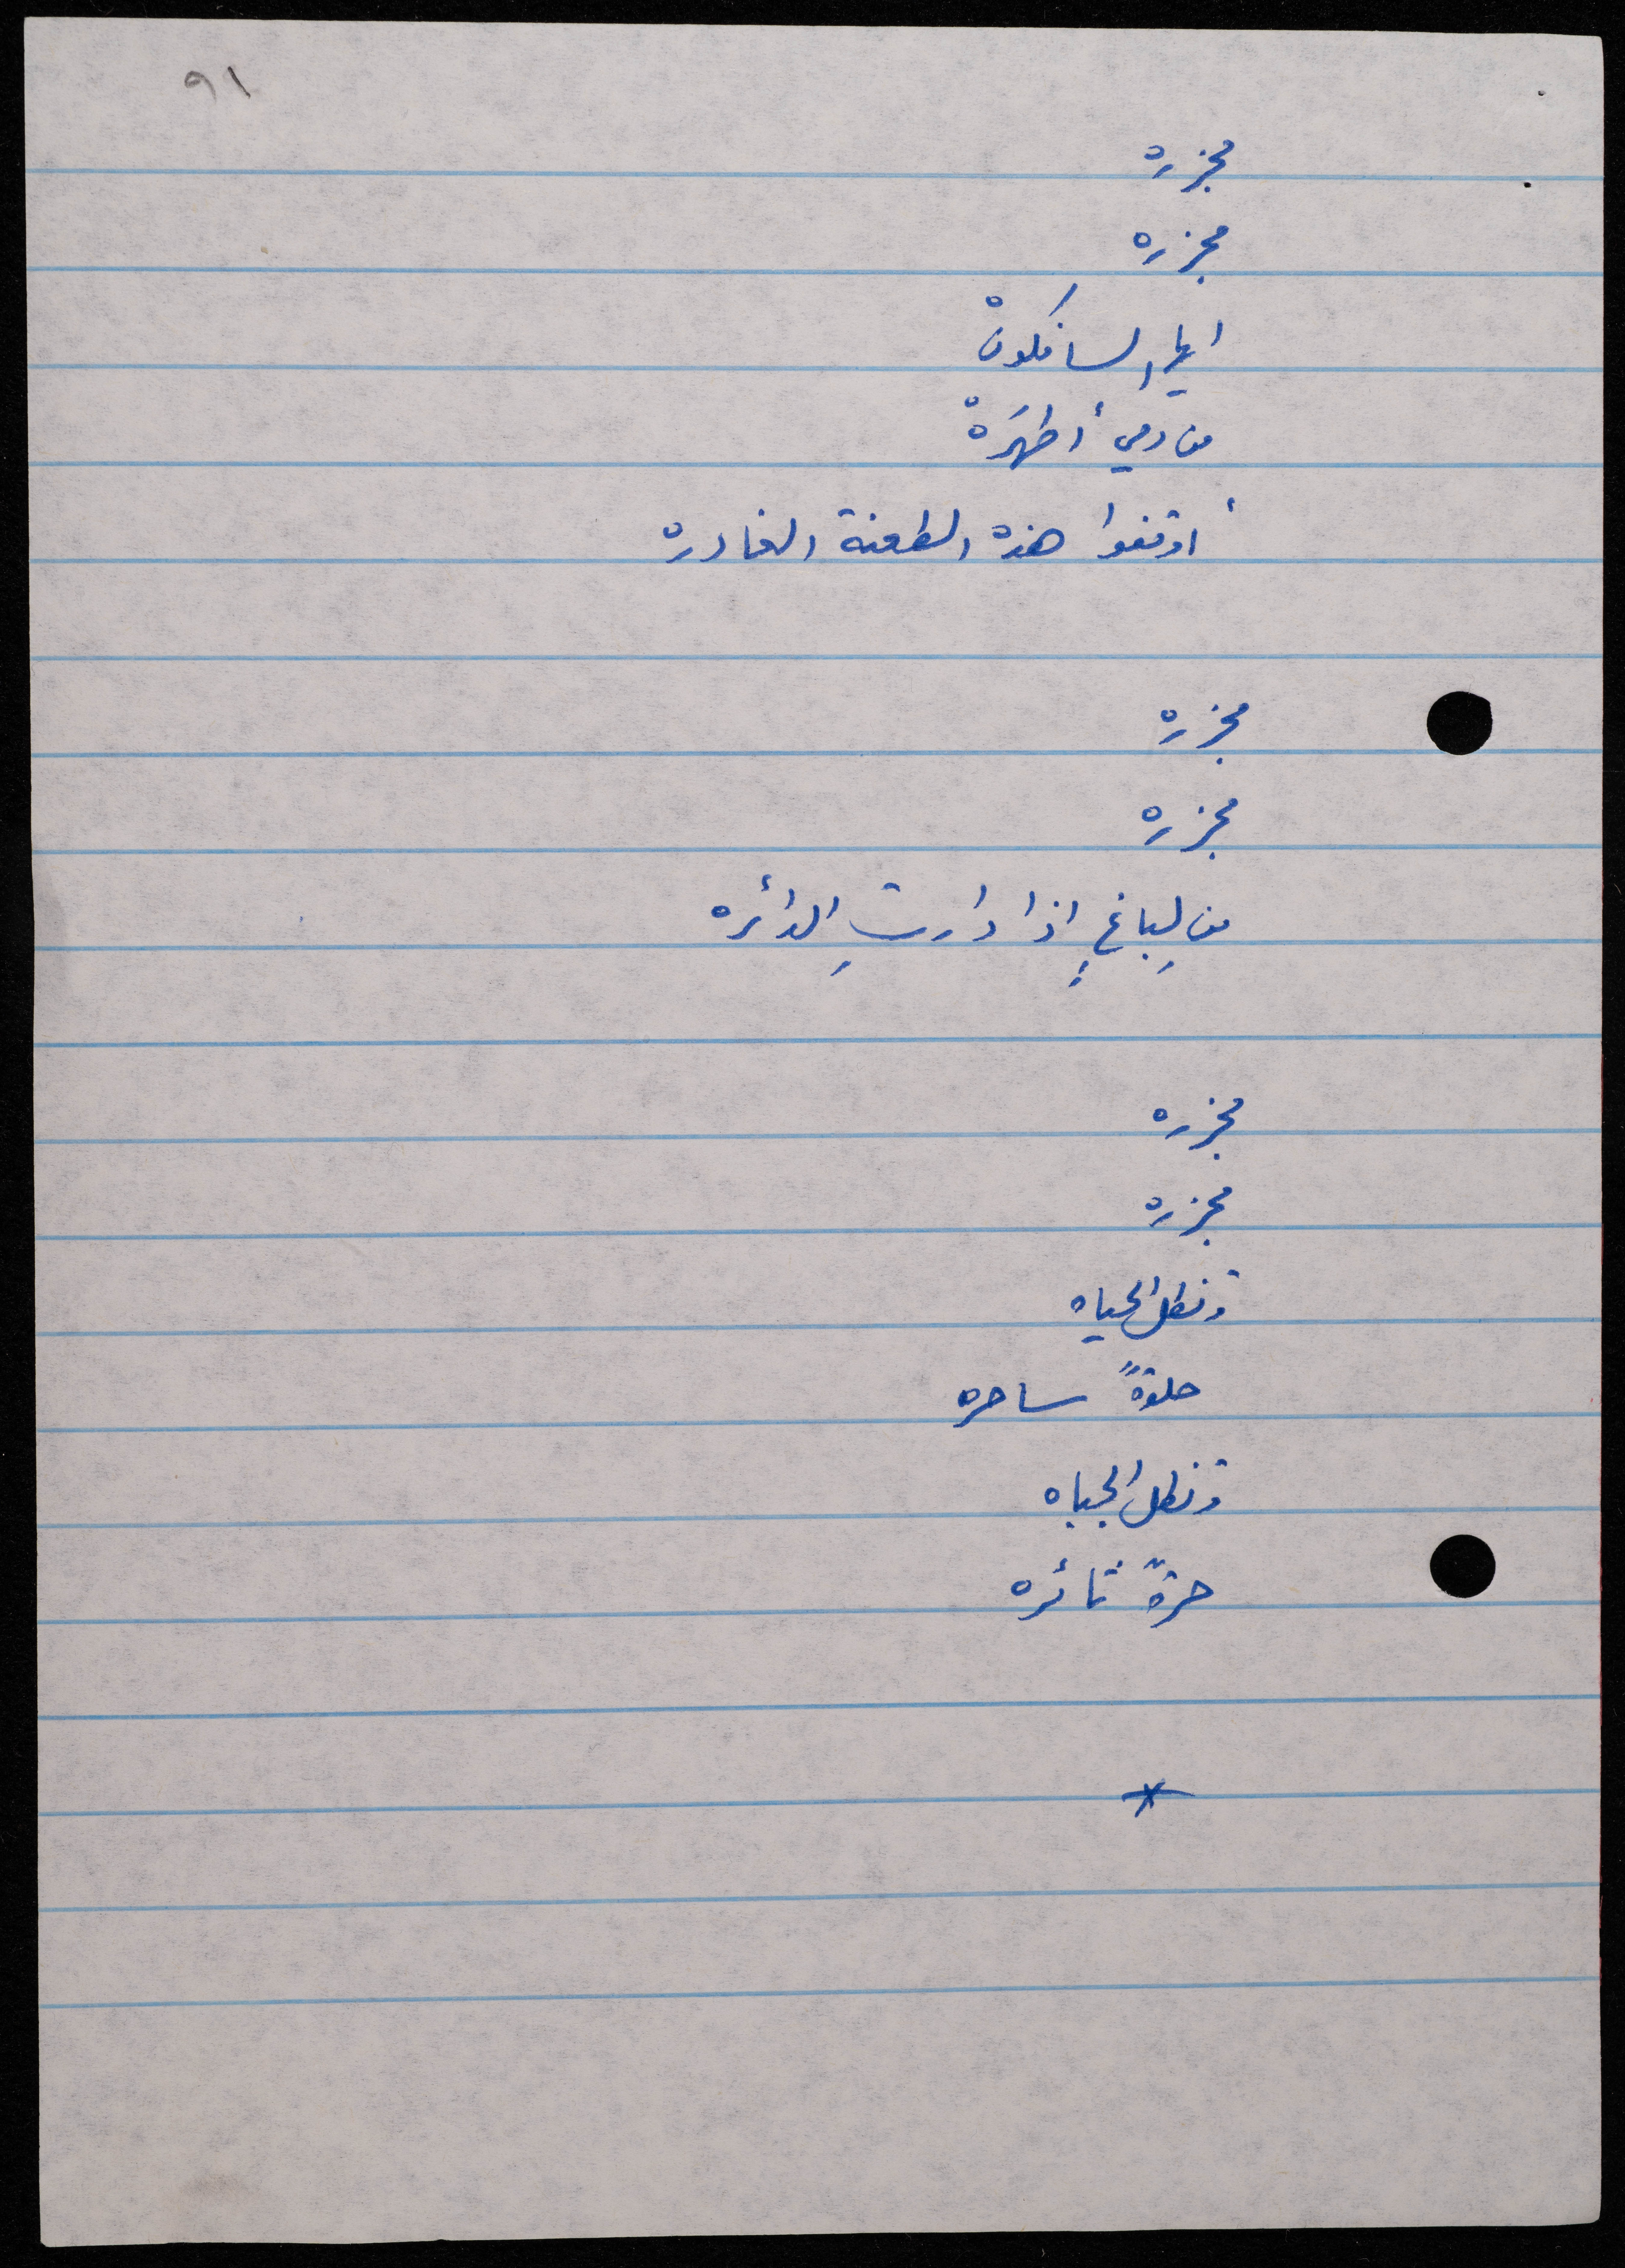 ٩١
مجزره
مجزره
ايها السافكونْ
من دمي أطهَرهْ
أوقفوا هذه الطعنة الغادره
مجزره
مجزره
من لِباغٍ اذا دارتِ الدائره
مجزره
مجزره
وتظل الحياه
حلوةً ساحره
وتظل الجباه
حرةً ثائره
*